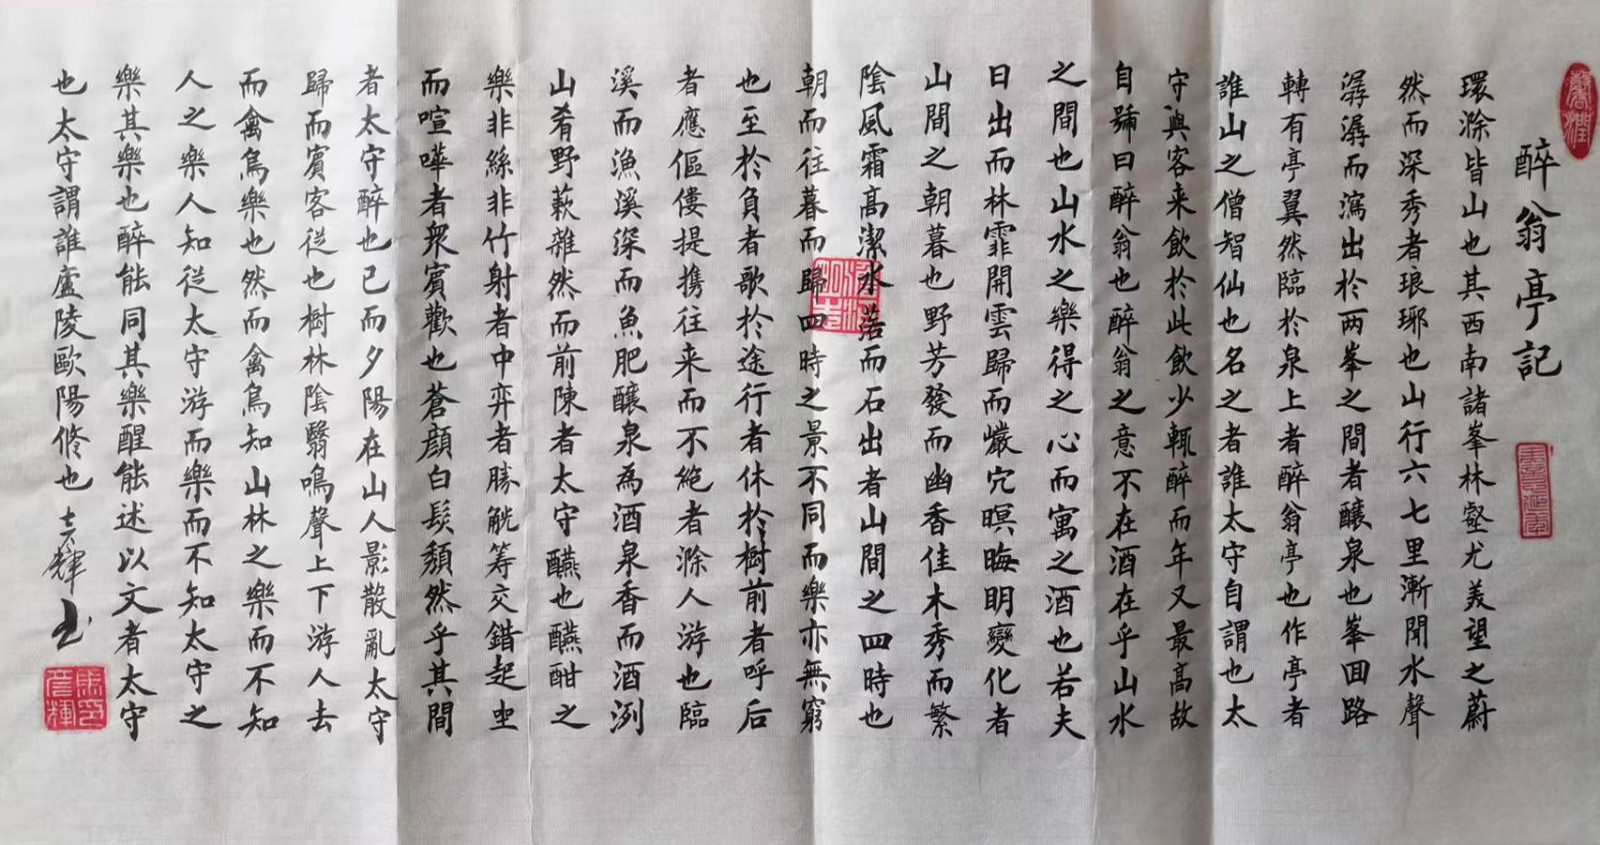 醉翁亭記
環滁皆山也其西南諸峯林壑尤美望之蔚
然而深秀者琅琊也山行六七里漸聞水聲
潺潺而瀉出於两峯之間者釀泉也峯回路
轉有亭翼然臨於泉上者醉翁亭也作亭者
誰山之僧智仙也名之者誰太守自謂也太
守與客来飲於此飲少輒醉而年又最高故
自號曰醉翁也醉翁之意不在酒在乎山水
之間也山水之樂得之心而寓之酒也若夫
日出而林霏開雲歸而巖穴暝晦明變化者
山間之朝暮也野芳發而幽香佳木秀而繁
陰風霜高潔水落而石出者山間之四時也
朝而往暮而歸四時之景不同而樂亦無窮
也至於負者歌於途行者休於樹前者呼后
者應傴僂提携往来而不絶者滁人游也臨
溪而漁溪深而魚肥釀泉為酒泉香而酒洌
山肴野蔌雜然而前陳者太守醼也醼酣之
樂非絲非竹射者中弈者勝觥筹交錯起坐
而喧嘩者衆賓歡也蒼顔白髮頹然乎其間
者太守醉也已而夕陽在山人影散亂太守
歸而賓客從也樹林陰翳鳴聲上下游人去
而禽鳥樂也然而禽鳥知山林之樂而不知
人之樂人知從太守游而樂而不知太守之
樂其樂也醉能同其樂醒能述以文者太守
也太守謂誰廬陵歐陽脩也